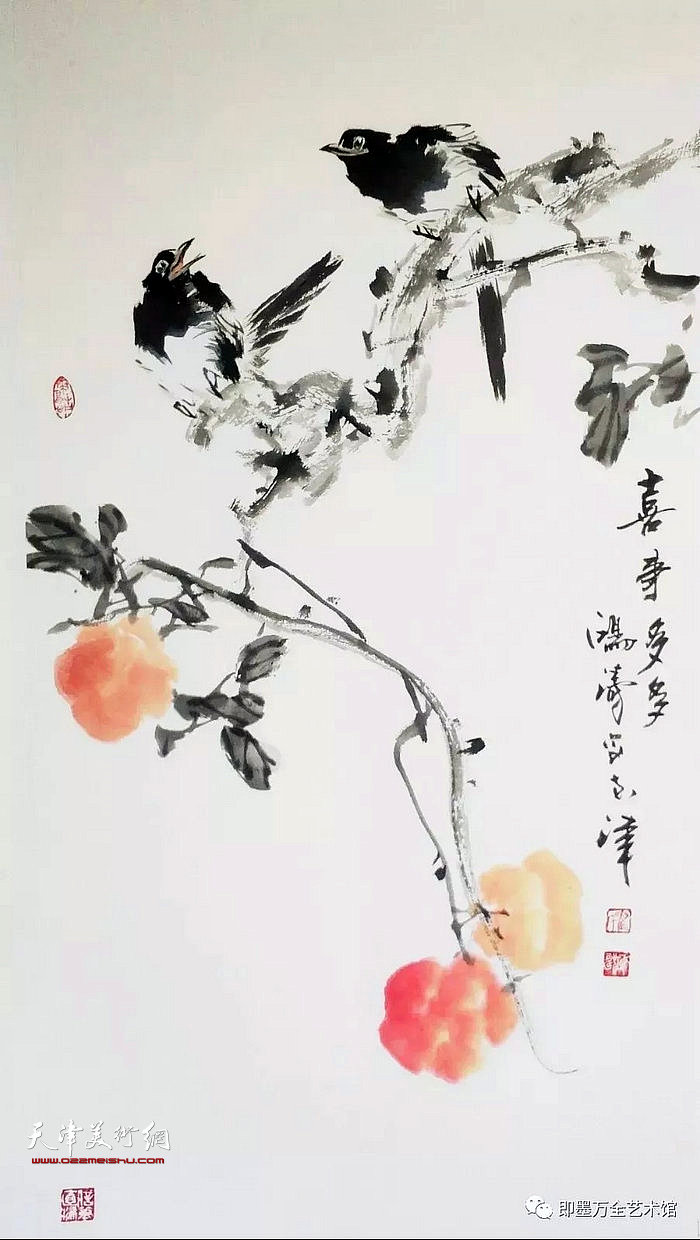 喜事多多
鴻濤写於津
天津美術網
www.022meishu.com
即墨万全艺术馆